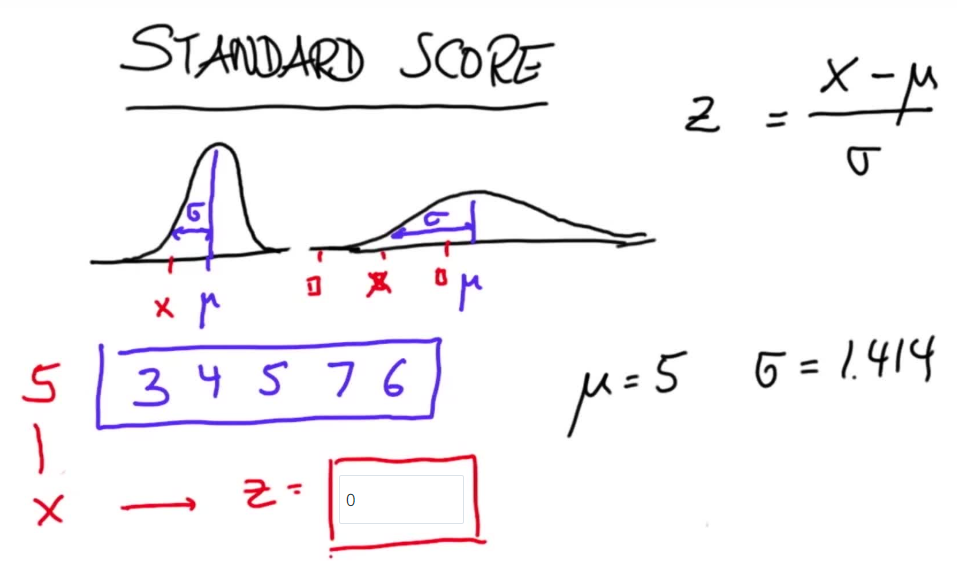 STANDARD SCORE
z = x - μ / σ
σ σ
x μ μ
5 3 4 5 7 6 μ = 5 σ = 1.414
x → z = 0